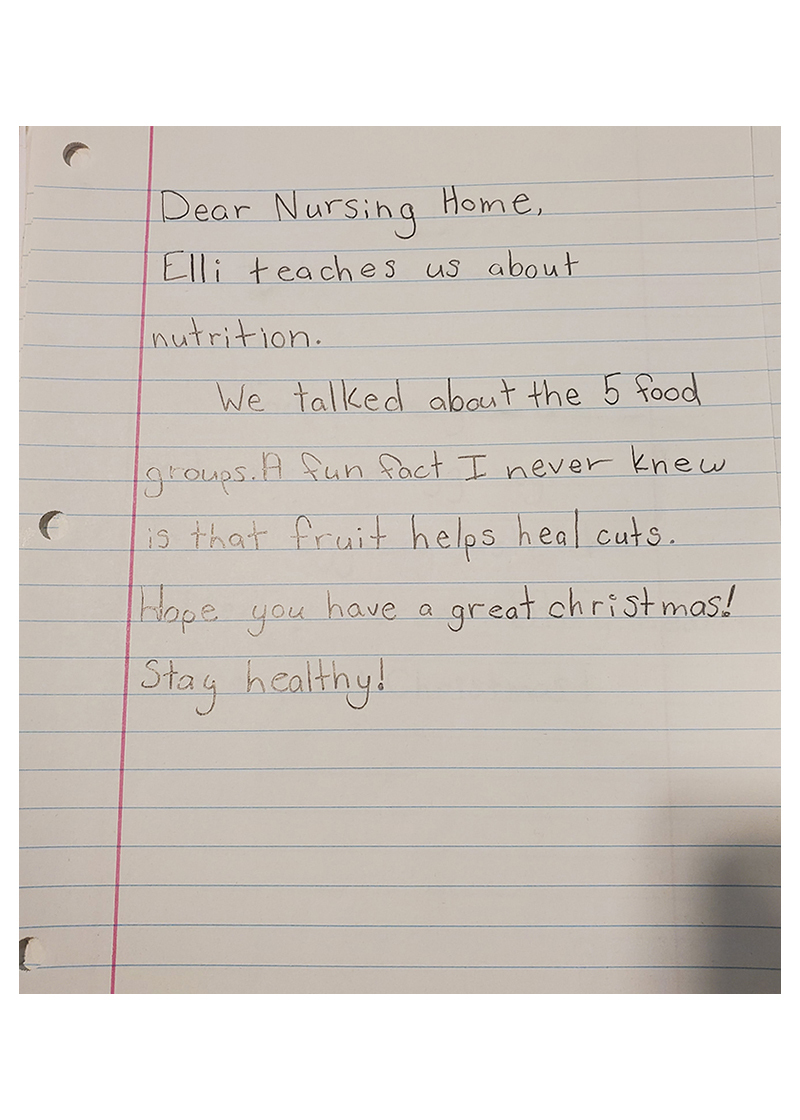 Dear Nursing Home,
Elli teaches us about
nutrition.
We talked about the 5 food
groups. A fun fact I never knew
is that fruit helps heal cuts.
Hope you have a great christmas!
Stay healthy!